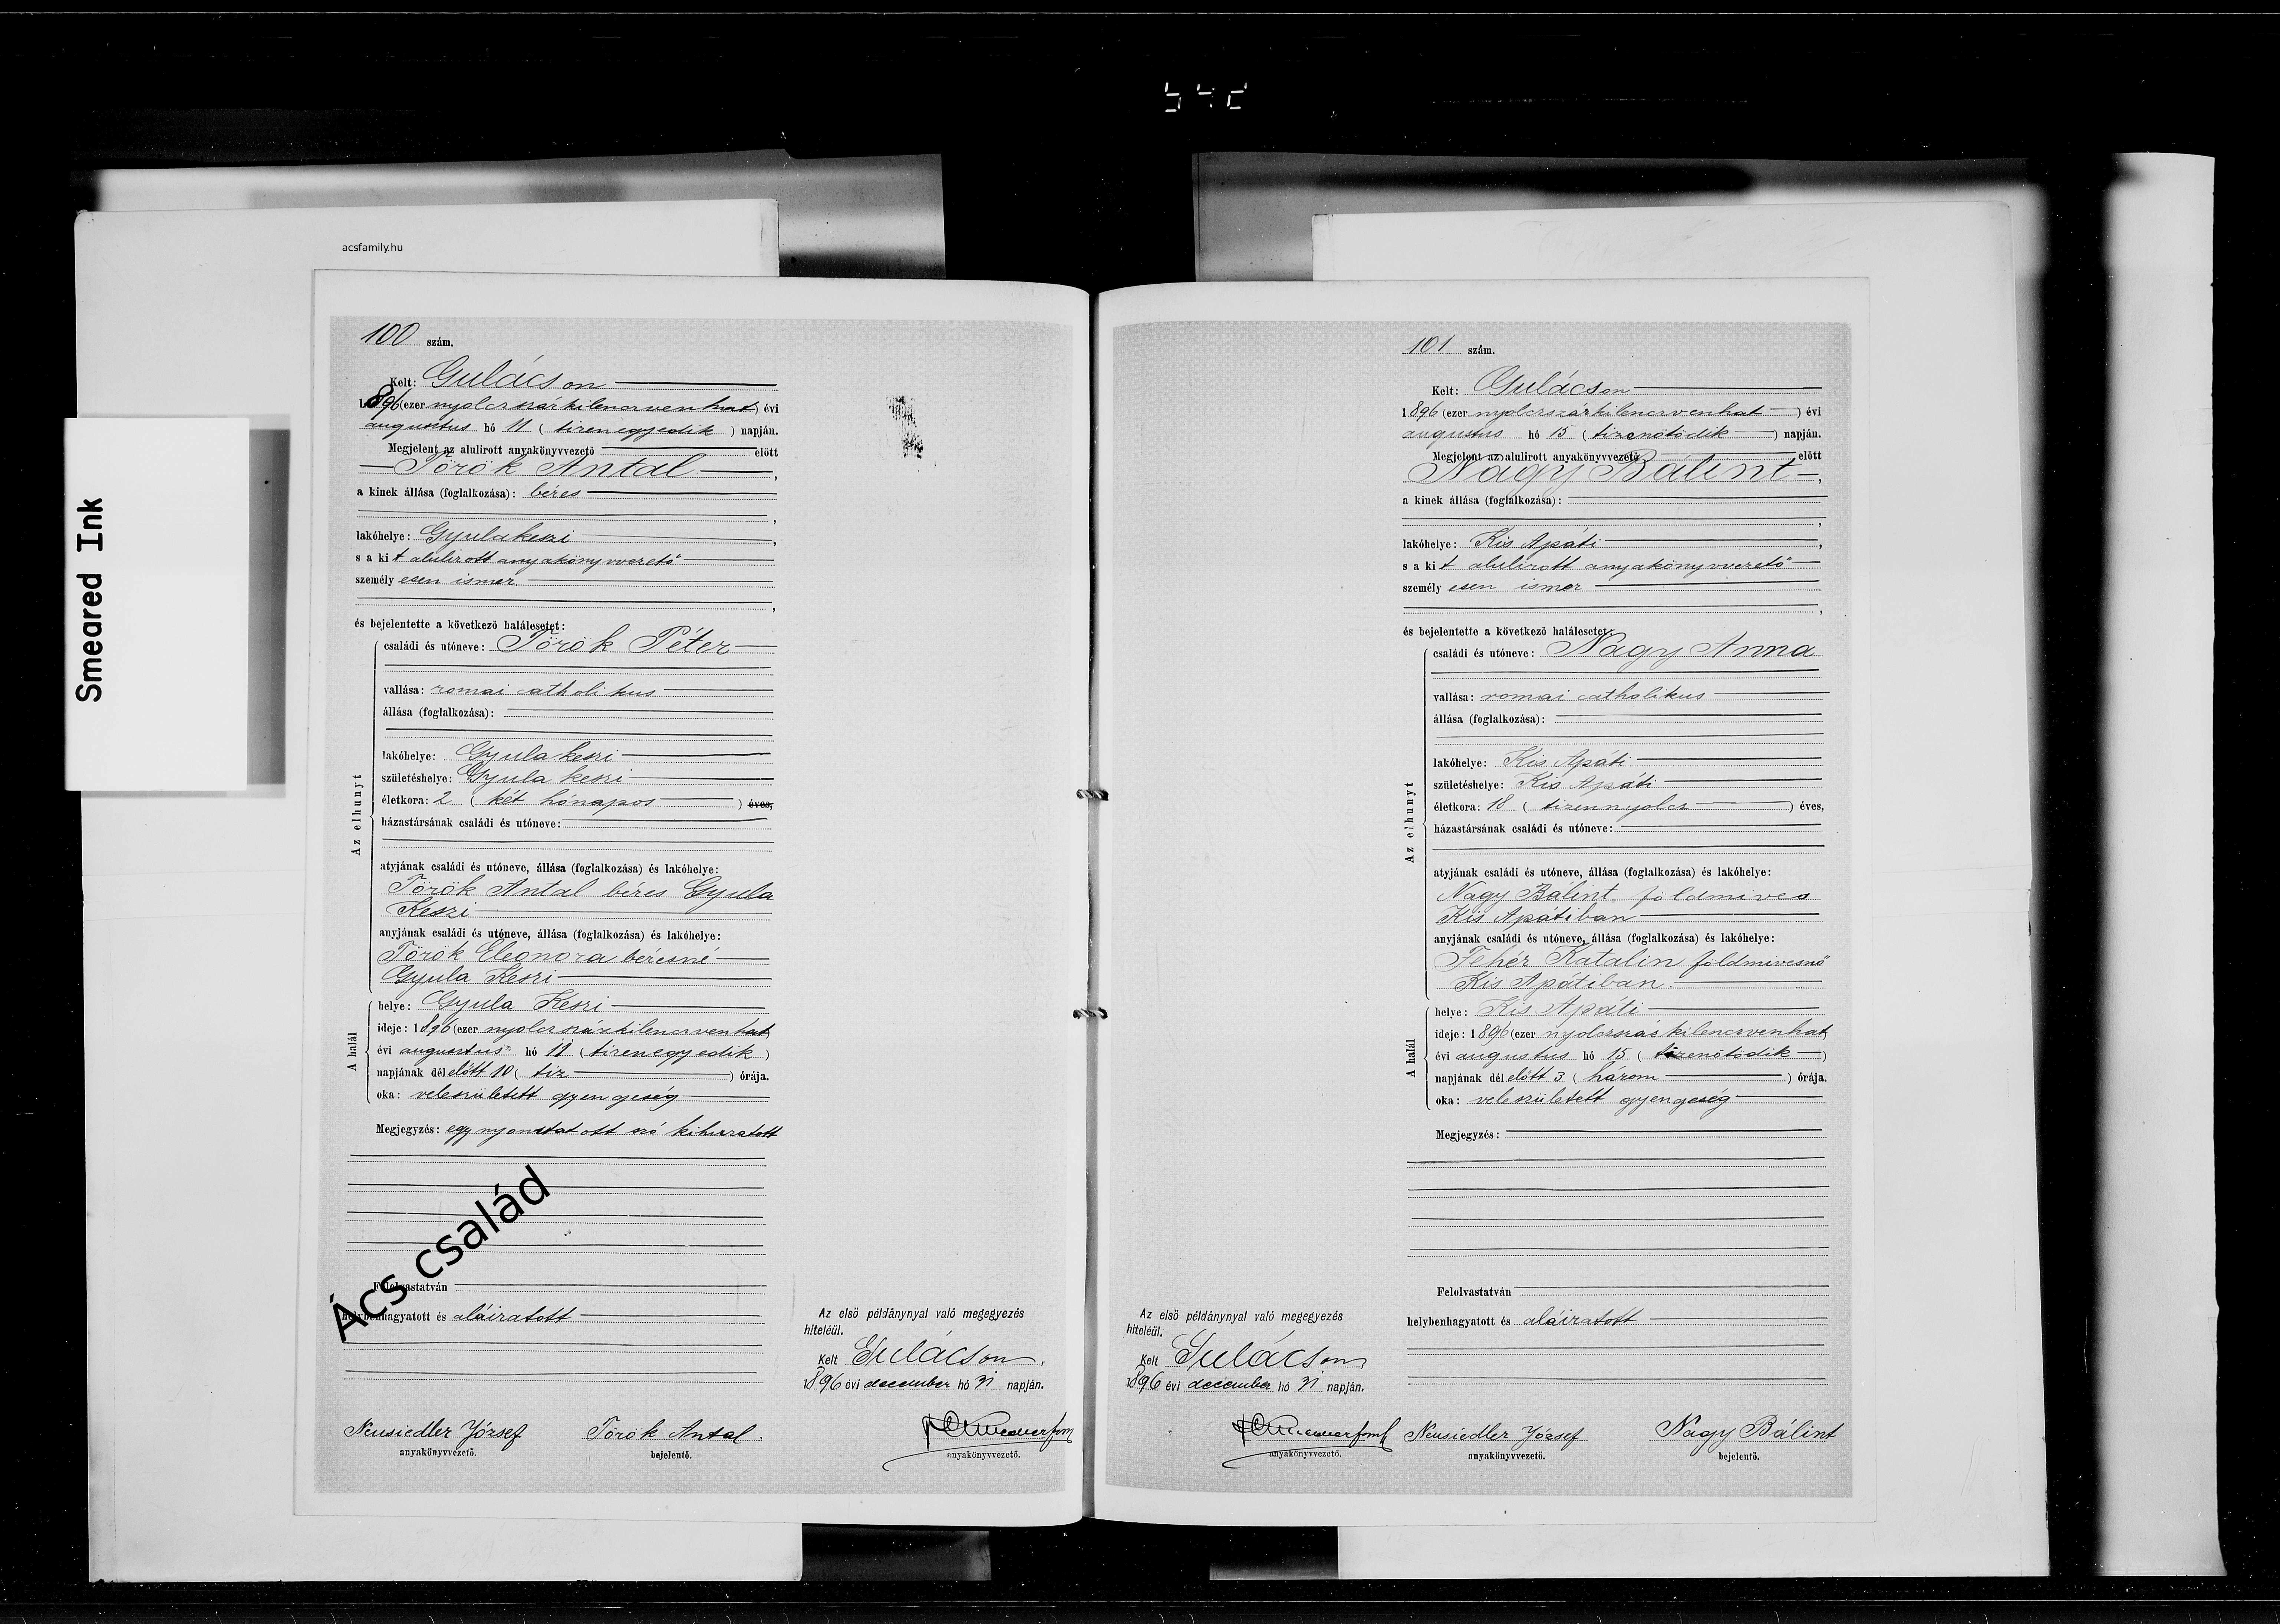 542
acsfamily.hu
Smeared Ink
100 szám.
Kelt: Gulácson
1896 (ezer nyolczszázkilenczvenhat) évi
augusztus hó 11 (tizenegyedik) napján.
Megjelent az alulirott anyakönyvvezető előtt
Török Antal,
a kinek állása (foglalkozása): béres
,
lakóhelye: Gyulakeszi,
s a kit alulirott anyakönyvvezető
személyesen ismer
,
és bejelentette a következő halálesetet:
Az elhunyt
családi és utóneve: Török Péter
vallása: romai catholikus
állása (foglalkozása):
lakóhelye: Gyula keszi
születéshelye: Gyula keszi
életkora: 2 (két hónapos) éves,
házastársának családi és utóneve:
atyjának családi és utóneve, állása (foglalkozása) és lakóhelye:
Török Antal béres Gyula
Keszi
anyjának családi és utóneve, állása (foglalkozása) és lakóhelye:
Török Eleonora béresné
Gyula Keszi
A halál
helye: Gyula Keszi
ideje: 1896 (ezer nyolczszázkilenczvenhat)
évi augusztus hó 11 (tizenegyedik)
napjának délelőtt 10 (tiz) órája.
oka: veleszületett gyengeség
Megjegyzés: egy nyomtatott szó kihuzatott
Ács család
Felolvastatván
helybenhagyatott és aláiratott
Neusiedler József
anyakönyvvezető.
Török Antal.
bejelentő.
Az első példánynyal való megegyezés
hiteléül.
Kelt Gulácson,
1896 évi december hó 31 napján.
anyakönyvvezető.
101 szám.
Kelt: Gulácson
1896 (ezer nyolczszázkilenczvenhat) évi
augusztus hó 15 (tizenötödik) napján.
Megjelent az alulirott anyakönyvvezető előtt
Nagy Bálint,
a kinek állása (foglalkozása):
,
lakóhelye: Kis Apáti,
s a kit alulirott anyakönyvvezető
személyesen ismer
,
és bejelentette a következő halálesetet:
Az elhunyt
családi és utóneve: Nagy Anna
vallása: romai catholikus
állása (foglalkozása):
lakóhelye: Kis Apáti
születéshelye: Kis Apáti
életkora: 18 (tizennyolcz) éves,
házastársának családi és utóneve:
atyjának családi és utóneve, állása (foglalkozása) és lakóhelye:
Nagy Bálint földmives
Kis Apátiban
anyjának családi és utóneve, állása (foglalkozása) és lakóhelye:
Fehér Katalin földmivesnő
Kis Apátiban.
A halál
helye: Kis Apáti
ideje: 1896 (ezer nyolczszáz kilenczvenhat)
évi augusztus hó 15 (tizenötödik)
napjának délelőtt 3 (három) órája.
oka: veleszületett gyengeség
Megjegyzés:
Felolvastatván
helybenhagyatott és aláiratott
Az első példánynyal való megegyezés
hiteléül.
Kelt Gulácson
1896 évi december hó 31 napján.
anyakönyvvezető.
Neusiedler József
anyakönyvvezető.
Nagy Bálint
bejelentő.